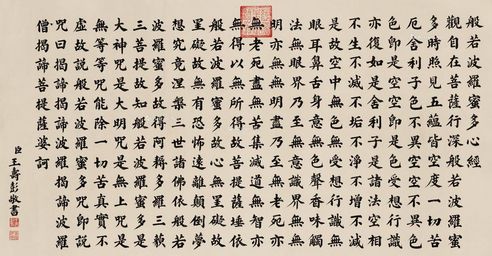 般若波羅蜜多心經
觀自在菩薩行深般若波羅蜜
多時照見五蘊皆空度一切苦
厄舍利子色不異空空不異色
色即是空空即是色受想行識
亦復如是舍利子是諸法空相
不生不滅不垢不淨不增不減
是故空中無色無受想行識無
眼耳鼻舌身意無色聲香味觸
法無眼界乃至無意識界無無
明亦無無明盡乃至無老死亦
無老死盡無苦集滅道無智亦
無得以無所得故菩提薩埵依
般若波羅蜜多故心無罣礙無
罣礙故無有恐怖遠離顛倒夢
想究竟涅槃三世諸佛依般若
波羅蜜多故得阿耨多羅三藐
三菩提故知般若波羅蜜多是
大神咒是大明咒是無上咒是
無等等咒能除一切苦真實不
虛故說般若波羅蜜多咒即說
咒曰揭諦揭諦波羅揭諦波羅
僧揭諦菩提薩婆訶
臣王壽彭敬書